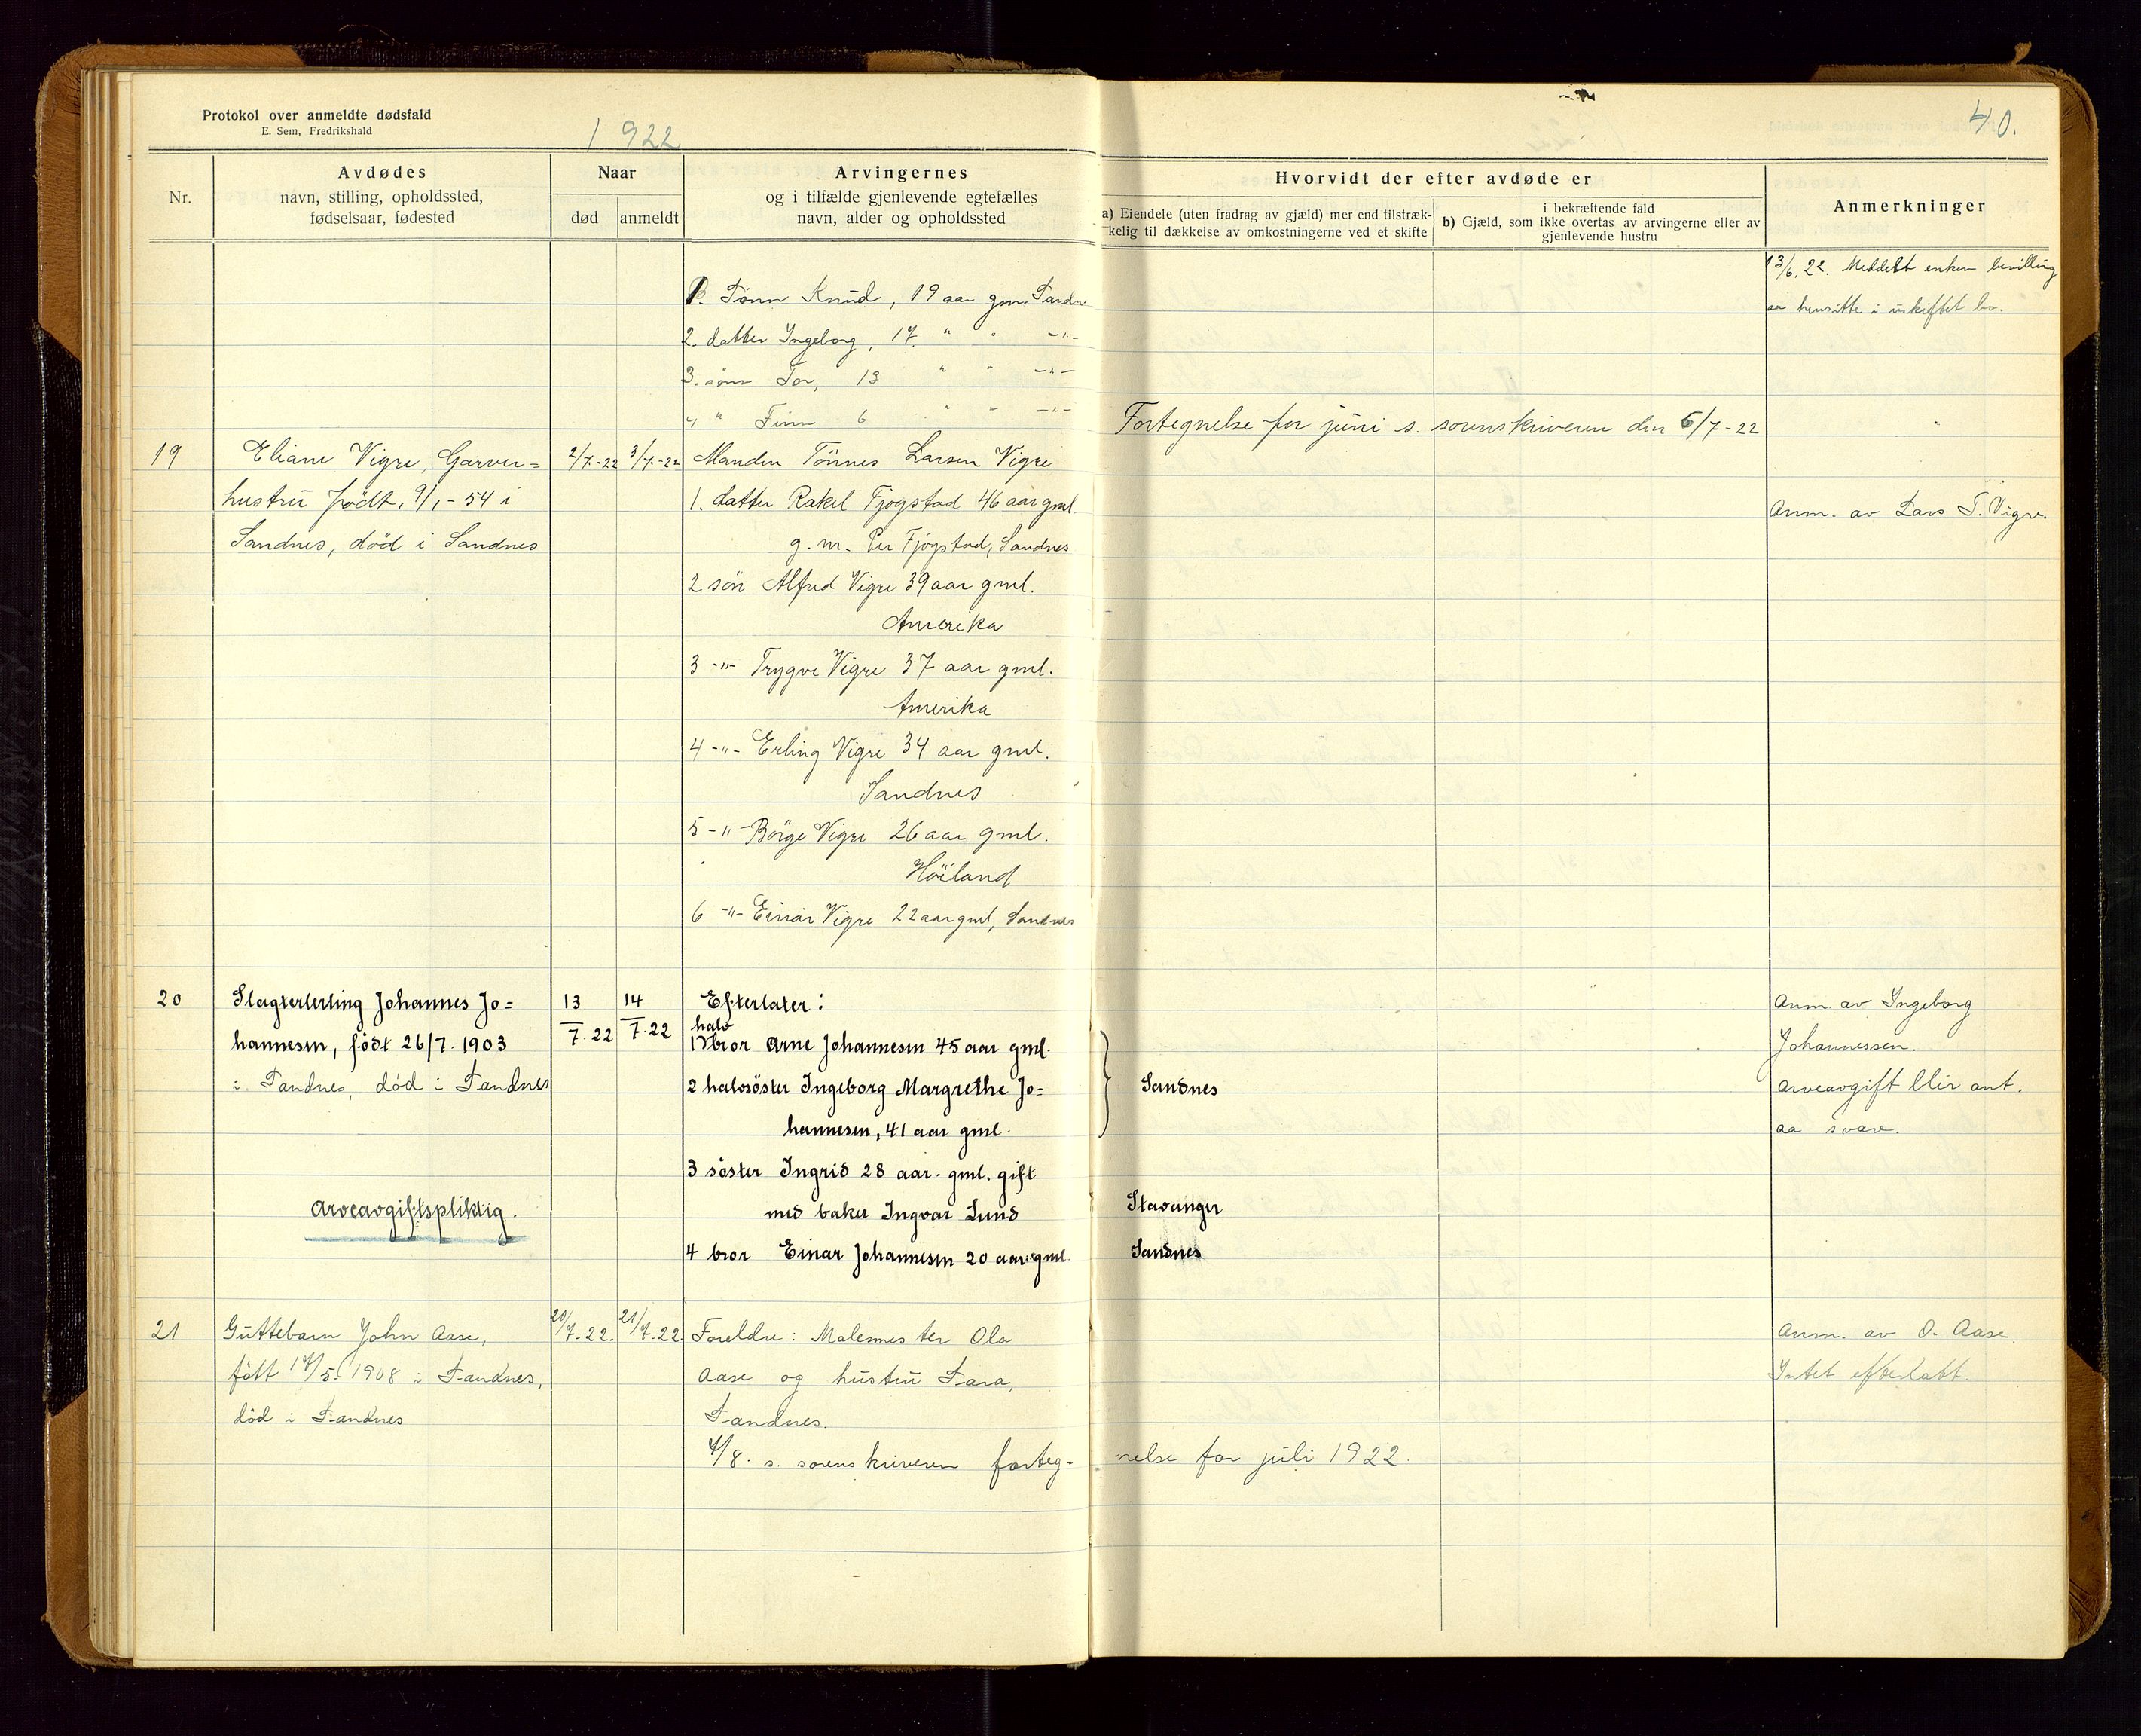 Protokol over anmeldte dødsfald
E. Sem, Fredrikshald
1922
40.
Nr.
Avdødes
navn, stilling, opholdssted,
fødselsaar, fødested
Naar
død
anmeldt
Arvingernes
og i tilfælde gjenlevende egtefælles
navn, alder og opholdssted
Hvorvidt der efter avdøde er
a) Eiendele (uten fradrag av gjæld) mer end tilstræk-
kelig til dækkelse av omkostningerne ved et skifte
i bekræftende fald
b) Gjæld, som ikke overtas av arvingerne eller av
gjenlevende hustru
Anmerkninger
13/6.22. Meddelt enken bevilling
aa hensitte i uskiftet bo.
1. Sønn Knud, 19 aar gm. Sandn
2. datter Ingeborg, 17. " " -"-
3. sønn Tor, 13 " " -"-
4 " Finn 6 " " -"-
Fortegnelse for juni s. sorenskriveren den 6/7-22
19
Eliane Vigre, Garver=
hustru født, 9/1-54 i
Sandnes, död i Sandnes
2/7.-22
3/7.-22
Manden Tönnes Larsen Vigre
1. datter Rakel Fjogstad 46 aar gml.
g.m. Per Fjogstad, Sandnes
2 sön Alfred Vigre 39 aar gml.
Amerika
3 -"- Trygve Vigre 37 aar gml.
Amerika
4 -"- Erling Vigre 34 aar gml.
Sandnes
5 -"- Börge Vigre 26 aar gml.
Höiland
6 -"- Einar Vigre 22 aar gml, Sandnes
Anm. av Lars T. Vigre.
20
Slagterlerling Johannes Jo=
hannesen, född 26/7. 1903
i Sandnes, död i Sandnes
Arveavgiftspliktig.
13/7.22
14/7.22
Efterlater:
halv
1 bror Arne Johannesen 45 aar gml.
2 halvsöster Ingeborg Margrethe Jo=
hannesen, 41 aar gml.
3 söster Ingrid 28 aar. gml. gift
med baker Ingvar Lund
4 bror Einar Johannesen 20 aar gml.
Sandnes
Stavanger
Sandnes
Anm. av Ingeborg
Johannessen.
Arveavgift blir ant.
aa svare.
21
Guttebarn John Aase,
født 17/5. 1908 i Sandnes,
död i Sandnes
20/7.22.
21/7.22
Foreldre: Malermester Ola
Aase og hustru Sara,
Sandnes.
4/8. s. sorenskriveren forteg-
nelse for juli 1922.
Anm. av O. Aase.
Intet efterlatt.